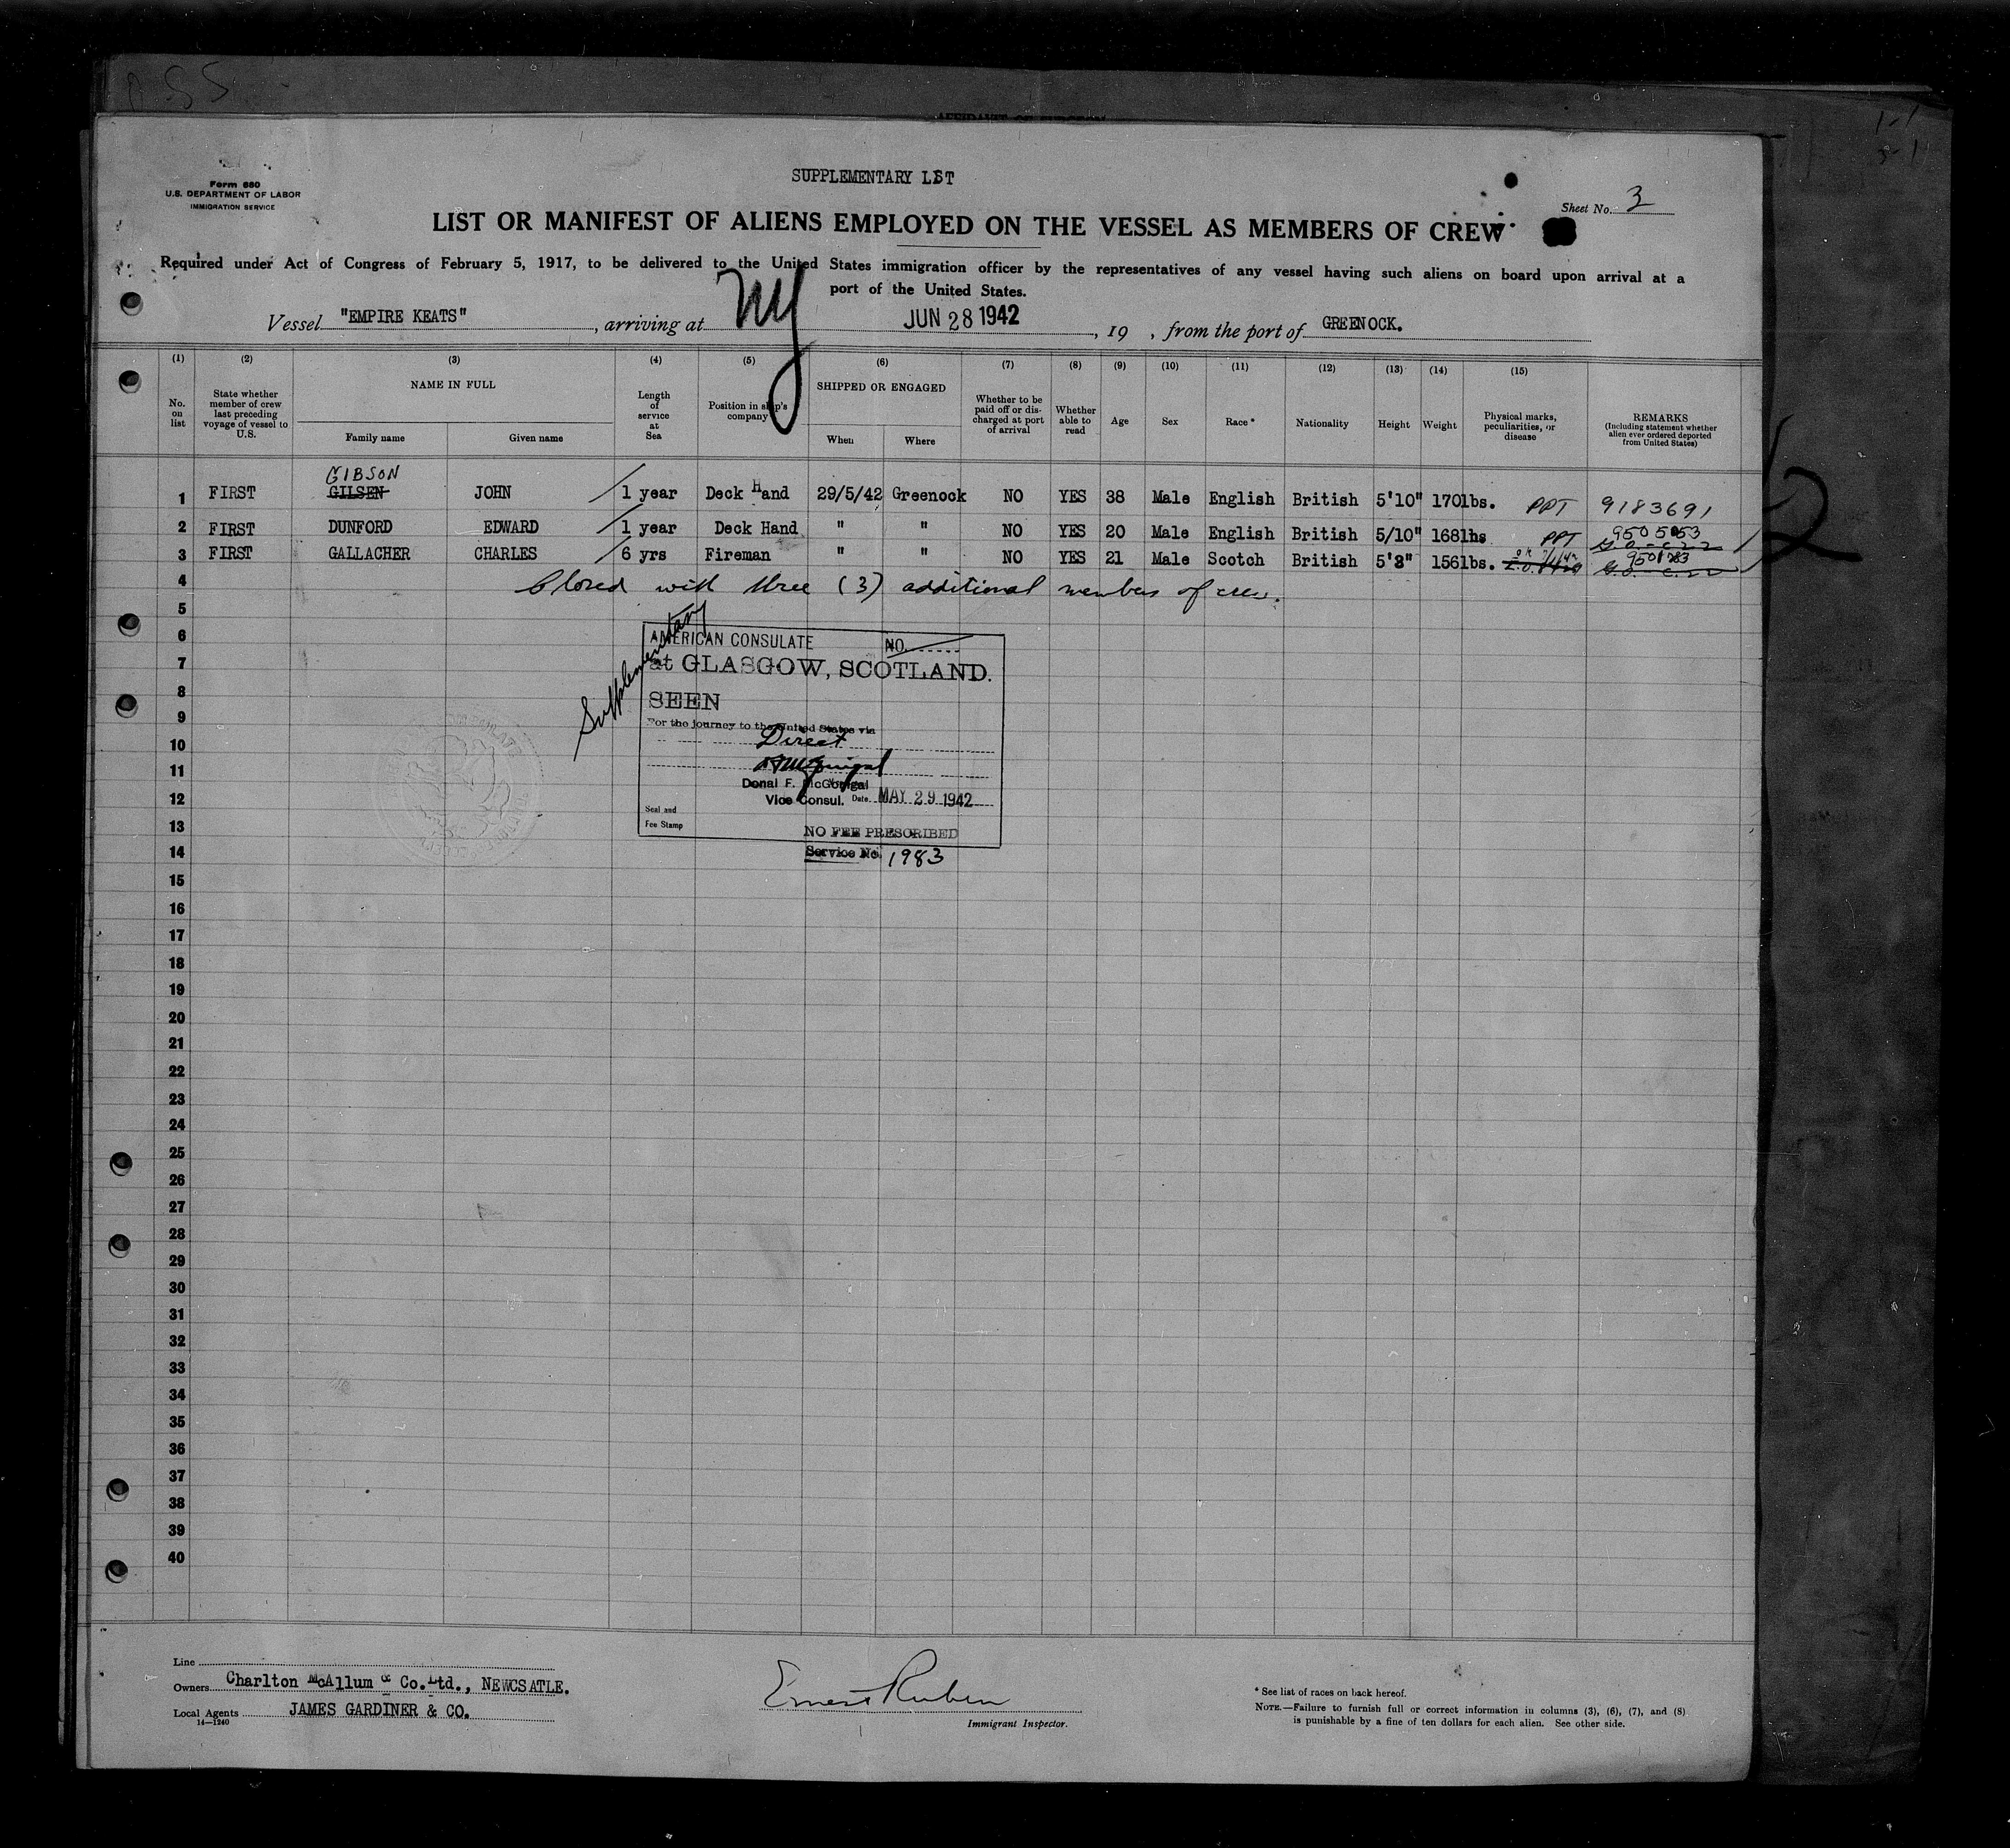 SUPPLEMENTARY LIST
Form 680
U.S. DEPARTMENT OF LABOR
IMMIGRATION SERVICE
Sheet No. 3
LIST OR MANIFEST OF ALIENS EMPLOYED ON THE VESSEL AS MEMBERS OF CREW
Required under Act of Congress of February 5, 1917, to be delivered to the United States immigration officer by the representatives of any vessel having such aliens on board upon arrival at a
port of the United States.
Vessel "EMPIRE KEATS", arriving at NY JUN 28 1942, 19 , from the port of GREENOCK.
(1) (2) (3) (4) (5) (6) (7) (8) (9) (10) (11) (12) (13) (14) (15)
No. on list
State whether member of crew last preceding voyage of vessel to U.S.
NAME IN FULL
Family name Given name
Length of service at Sea
Position in ship's company
SHIPPED OR ENGAGED
When Where
Whether to be paid off or discharged at port of arrival
Whether able to read
Age
Sex
Race *
Nationality
Height
Weight
Physical marks, peculiarities, or disease
REMARKS
(Including statement whether alien ever ordered deported from United States)
GIBSON
1 FIRST GILSEN JOHN 1 year Deck Hand 29/5/42 Greenock NO YES 38 Male English British 5'10" 170lbs. PPT 9183691
2 FIRST DUNFORD EDWARD 1 year Deck Hand " " NO YES 20 Male English British 5/10" 168lbs PPT 9505053
3 FIRST GALLACHER CHARLES 6 yrs Fireman " " NO YES 21 Male Scotch British 5'8" 156lbs.
4 Closed with three (3) additional members of crew.
5
6
7
8
9
10
11
12
13
14
15
16
17
18
19
20
21
22
23
24
25
26
27
28
29
30
31
32
33
34
35
36
37
38
39
40
Supplementary
AMERICAN CONSULATE NO.
at GLASGOW, SCOTLAND.
SEEN
For the journey to the United States via
Direct
Donal F. McGonigal
Vice Consul. Date MAY 29 1942
Seal and
Fee Stamp
NO FEE PRESCRIBED
Service No. 1983
2
Line
Owners Charlton McAllum & Co. Ltd., NEWCSATLE.
Local Agents JAMES GARDINER & CO.
14—1240
Ernest Rubin
Immigrant Inspector.
* See list of races on back hereof.
NOTE.—Failure to furnish full or correct information in columns (3), (6), (7), and (8)
is punishable by a fine of ten dollars for each alien. See other side.